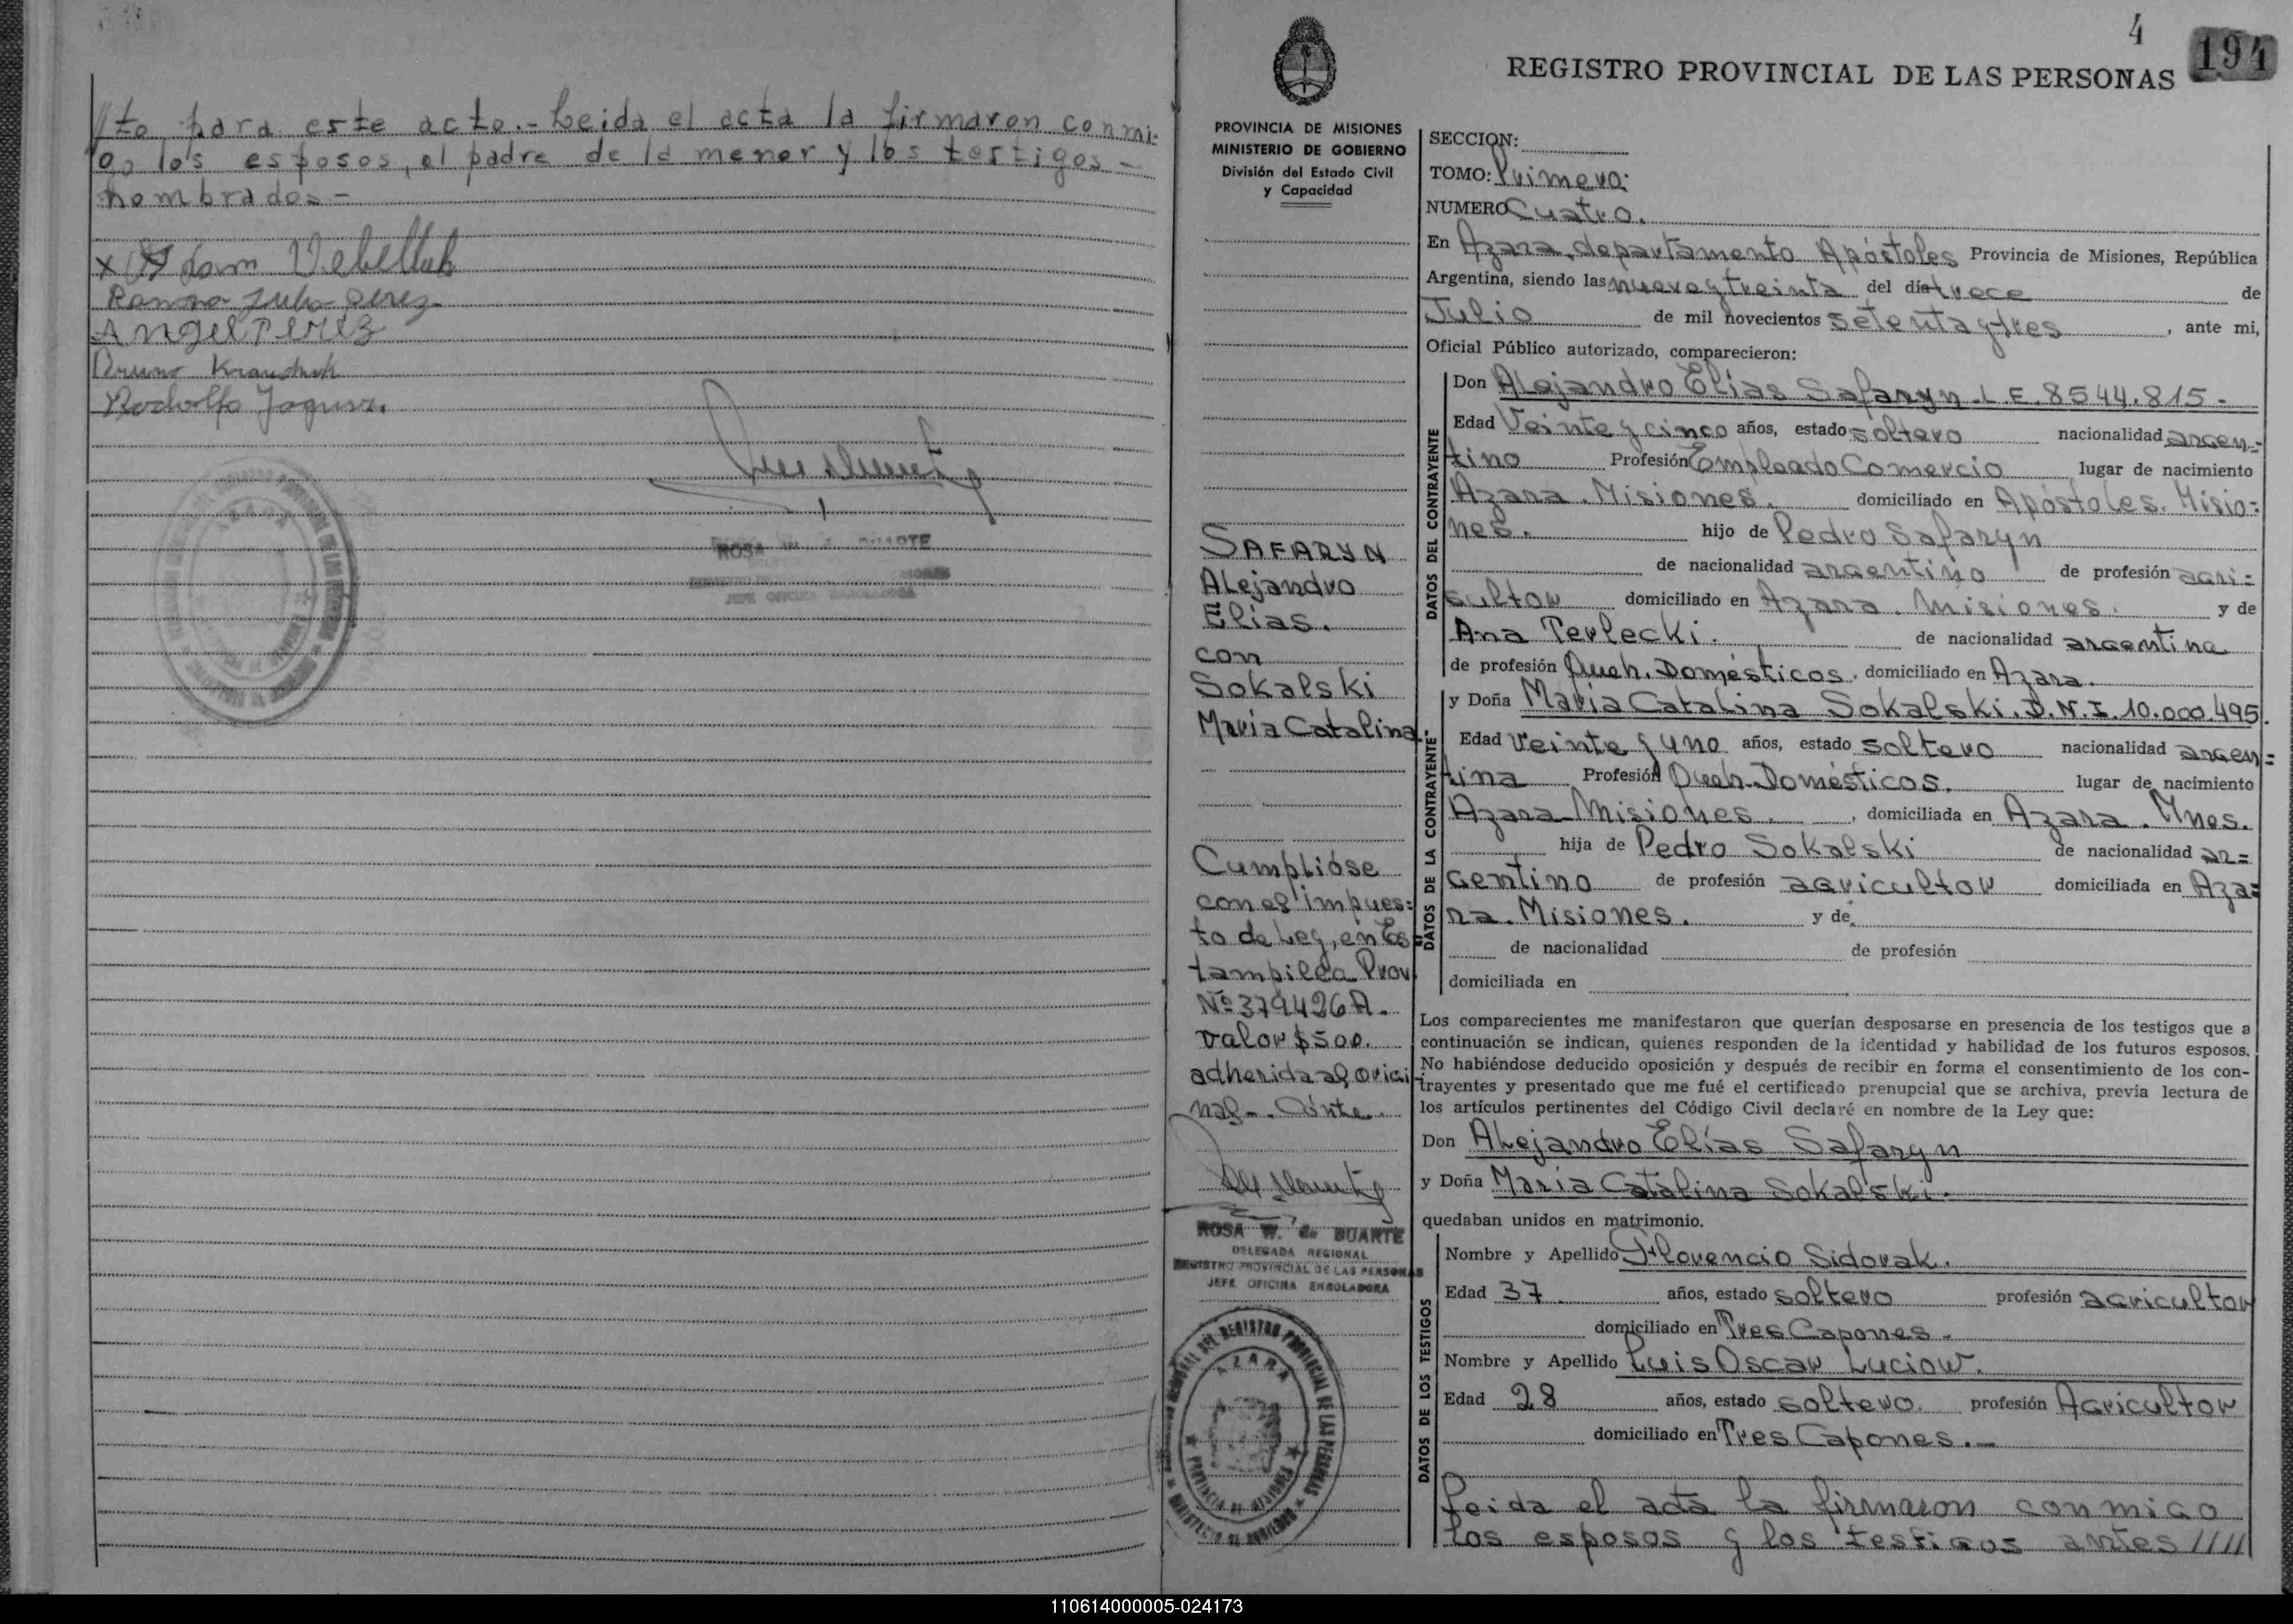 to para este acto.- Leida el acta la firmaron conmi-
go los esposos, el padre de la menor y los testigos -
nombrados-
Angel Perez
Rodolfo
ROSA DUARTE
JEFE OFICINA ENROLADORA
4
194
REGISTRO PROVINCIAL DE LAS PERSONAS
PROVINCIA DE MISIONES
MINISTERIO DE GOBIERNO
División del Estado Civil
y Capacidad
SAFARYN
Alejandro
Elías.
con
Sokalski
María Catalina
Cumplióse
con el impues=
to de Ley, en Es=
tampilla Prov.
Nº 379426A.
valor $500.
adherida al origi-
nal-. Conste.
ROSA W. de DUARTE
DELEGADA REGIONAL
REGISTRO PROVINCIAL DE LAS PERSONAS
JEFE OFICINA ENROLADORA
DEL REGISTRO PROVINCIAL DE LAS PERSONAS
AZARA
PROVINCIA DE MISIONES
MINISTERIO DE GOBIERNO
SECCION:
TOMO: Primero:
NUMERO Cuatro.
En Azara, departamento Apóstoles Provincia de Misiones, República
Argentina, siendo las nueve y treinta del día trece de
Julio de mil novecientos setenta y tres, ante mi,
Oficial Público autorizado, comparecieron:
DATOS DEL CONTRAYENTE
Don Alejandro Elías Safaryn. L.E. 8544.815-
Edad Veinte y cinco años, estado soltero nacionalidad argen-
tino Profesión Empleado Comercio lugar de nacimiento
Azara. Misiones. domiciliado en Apóstoles. Misio=
nes. hijo de Pedro Safaryn
de nacionalidad argentino de profesión agri=
cultor domiciliado en Azara. Misiones. y de
Ana Terlecki. de nacionalidad argentina
de profesión Queh. Domésticos, domiciliado en Azara.
DATOS DE LA CONTRAYENTE
y Doña María Catalina Sokalski. D.N.I. 10.000.495.
Edad Veinte y uno años, estado soltero nacionalidad argen=
tina Profesión Queh. Domésticos. lugar de nacimiento
Azara Misiones. , domiciliada en Azara. Mnes.
hija de Pedro Sokalski de nacionalidad ar=
gentino de profesión agricultor domiciliada en Aza=
ra. Misiones. y de
de nacionalidad de profesión
domiciliada en
Los comparecientes me manifestaron que querían desposarse en presencia de los testigos que a
continuación se indican, quienes responden de la identidad y habilidad de los futuros esposos.
No habiéndose deducido oposición y después de recibir en forma el consentimiento de los con-
trayentes y presentado que me fué el certificado prenupcial que se archiva, previa lectura de
los artículos pertinentes del Código Civil declaré en nombre de la Ley que:
Don Alejandro Elías Safaryn
y Doña María Catalina Sokalski.
quedaban unidos en matrimonio.
DATOS DE LOS TESTIGOS
Nombre y Apellido Florencio Sidorak.
Edad 37 años, estado soltero profesión agricultor
domiciliado en Tres Capones.
Nombre y Apellido Luis Oscar Luciow.
Edad 28 años, estado soltero. profesión Agricultor
domiciliado en Tres Capones.-
Leida el acta la firmaron conmigo
los esposos y los testigos antes /////
110614000005-024173